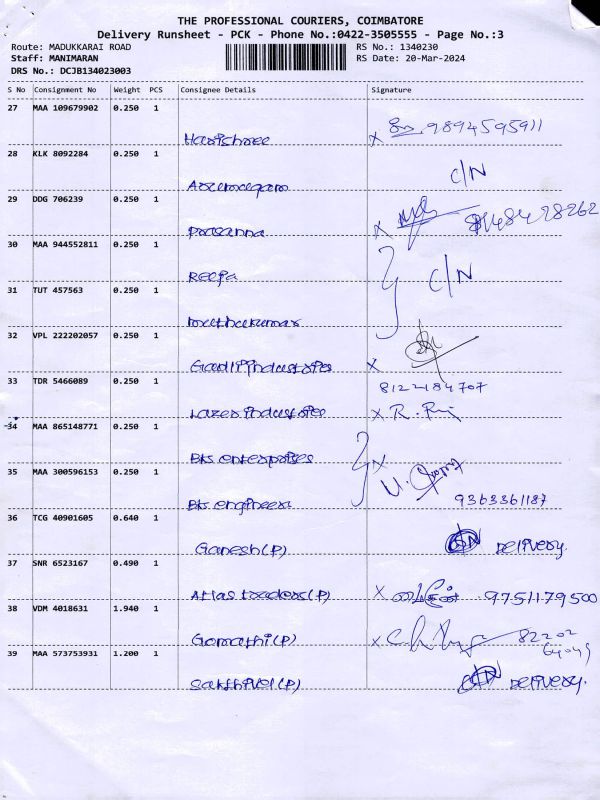 THE PROFESSIONAL COURIERS, COIMBATORE
Delivery Runsheet - PCK - Phone No.:0422-3505555 - Page No.:3
Route: MADUKKARAI ROAD RS No.: 1340230
Staff: MANIMARAN RS Date: 20-Mar-2024
DRS No.: DCJB134023003
S No Consignment No Weight PCS Consignee Details Signature
27 MAA 109679902 0.250 1
Harishree x 9894595911
28 KLK 8092284 0.250 1
C/N
29 DDG 706239 0.250 1
Prasanna x
30 MAA 944552811 0.250 1
Reeja C/N
31 TUT 457563 0.250 1
Muthukumar
32 VPL 222202057 0.250 1
industries x
33 TDR 5466089 0.250 1 8122184707
Lazer industries x R.
34 MAA 865148771 0.250 1
Bks enterprises x
35 MAA 300596153 0.250 1
Bks engineers 9363361187
36 TCG 40901605 0.640 1
Ganesh(P) Delivery.
37 SNR 6523167 0.490 1
Atlas traders(P) x 9751179500
38 VDM 4018631 1.940 1
Gomathi(P) x 82202
39 MAA 573753931 1.200 1
Sakthivel(P) Delivery.